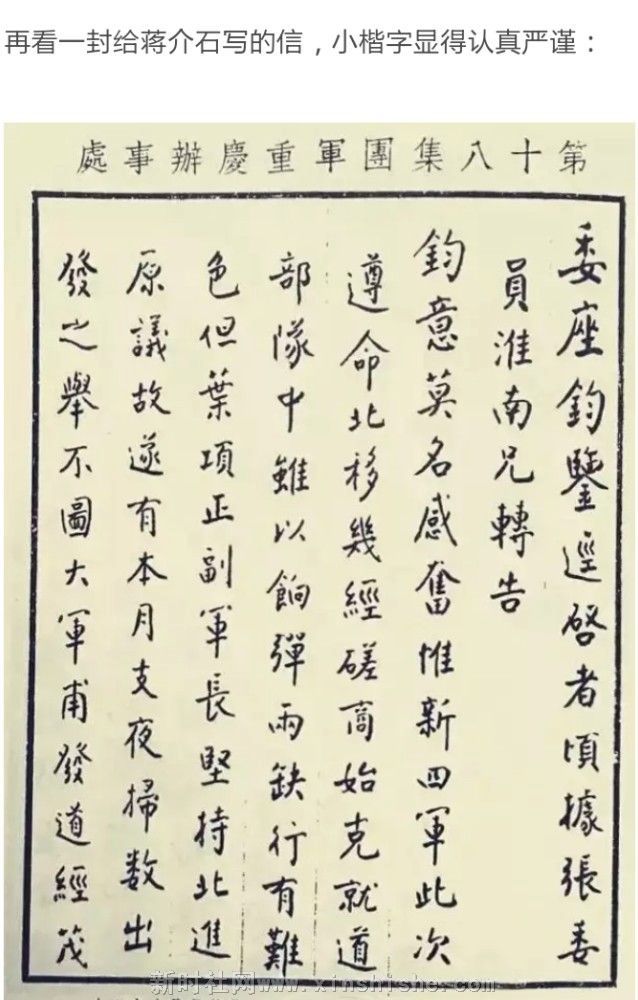 再看一封给蒋介石写的信，小楷字显得认真严谨：
第十八集團軍重慶辦事處
委座鈞鑒逕啓者頃據張委
員淮南兄轉告
鈞意莫名感奮惟新四軍此次
遵命北移幾經磋商始克就道
部隊中雖以餉彈兩缺行有難
色但葉項正副軍長堅持北進
原議故遂有本月支夜掃數出
發之舉不圖大軍甫發道經茂
新时社网www.xinshishe.com